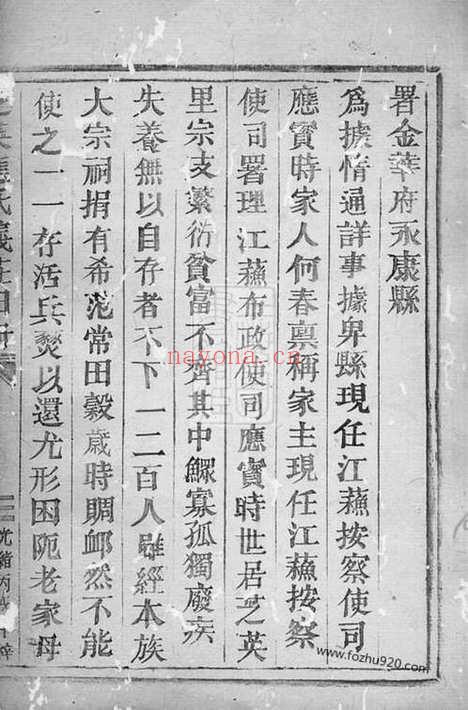 署金華府永康縣
爲據情通詳事據卑縣現任江蘇按察使司
應寶時家人何春禀稱家主現任江蘇按察
使司署理江蘇布政使司應寶時世居芝英
里宗支繁衍貧富不齊其中鰥寡孤獨廢疾
失養無以自存者不下一二百人雖經本族
大宗祠捐有希范常田穀歲時賙卹然不能
使之一一存活兵燹以還尤形困阨老家母
芝英應氏義莊
光緒丙
nayona.cn
www.fozhu920.com